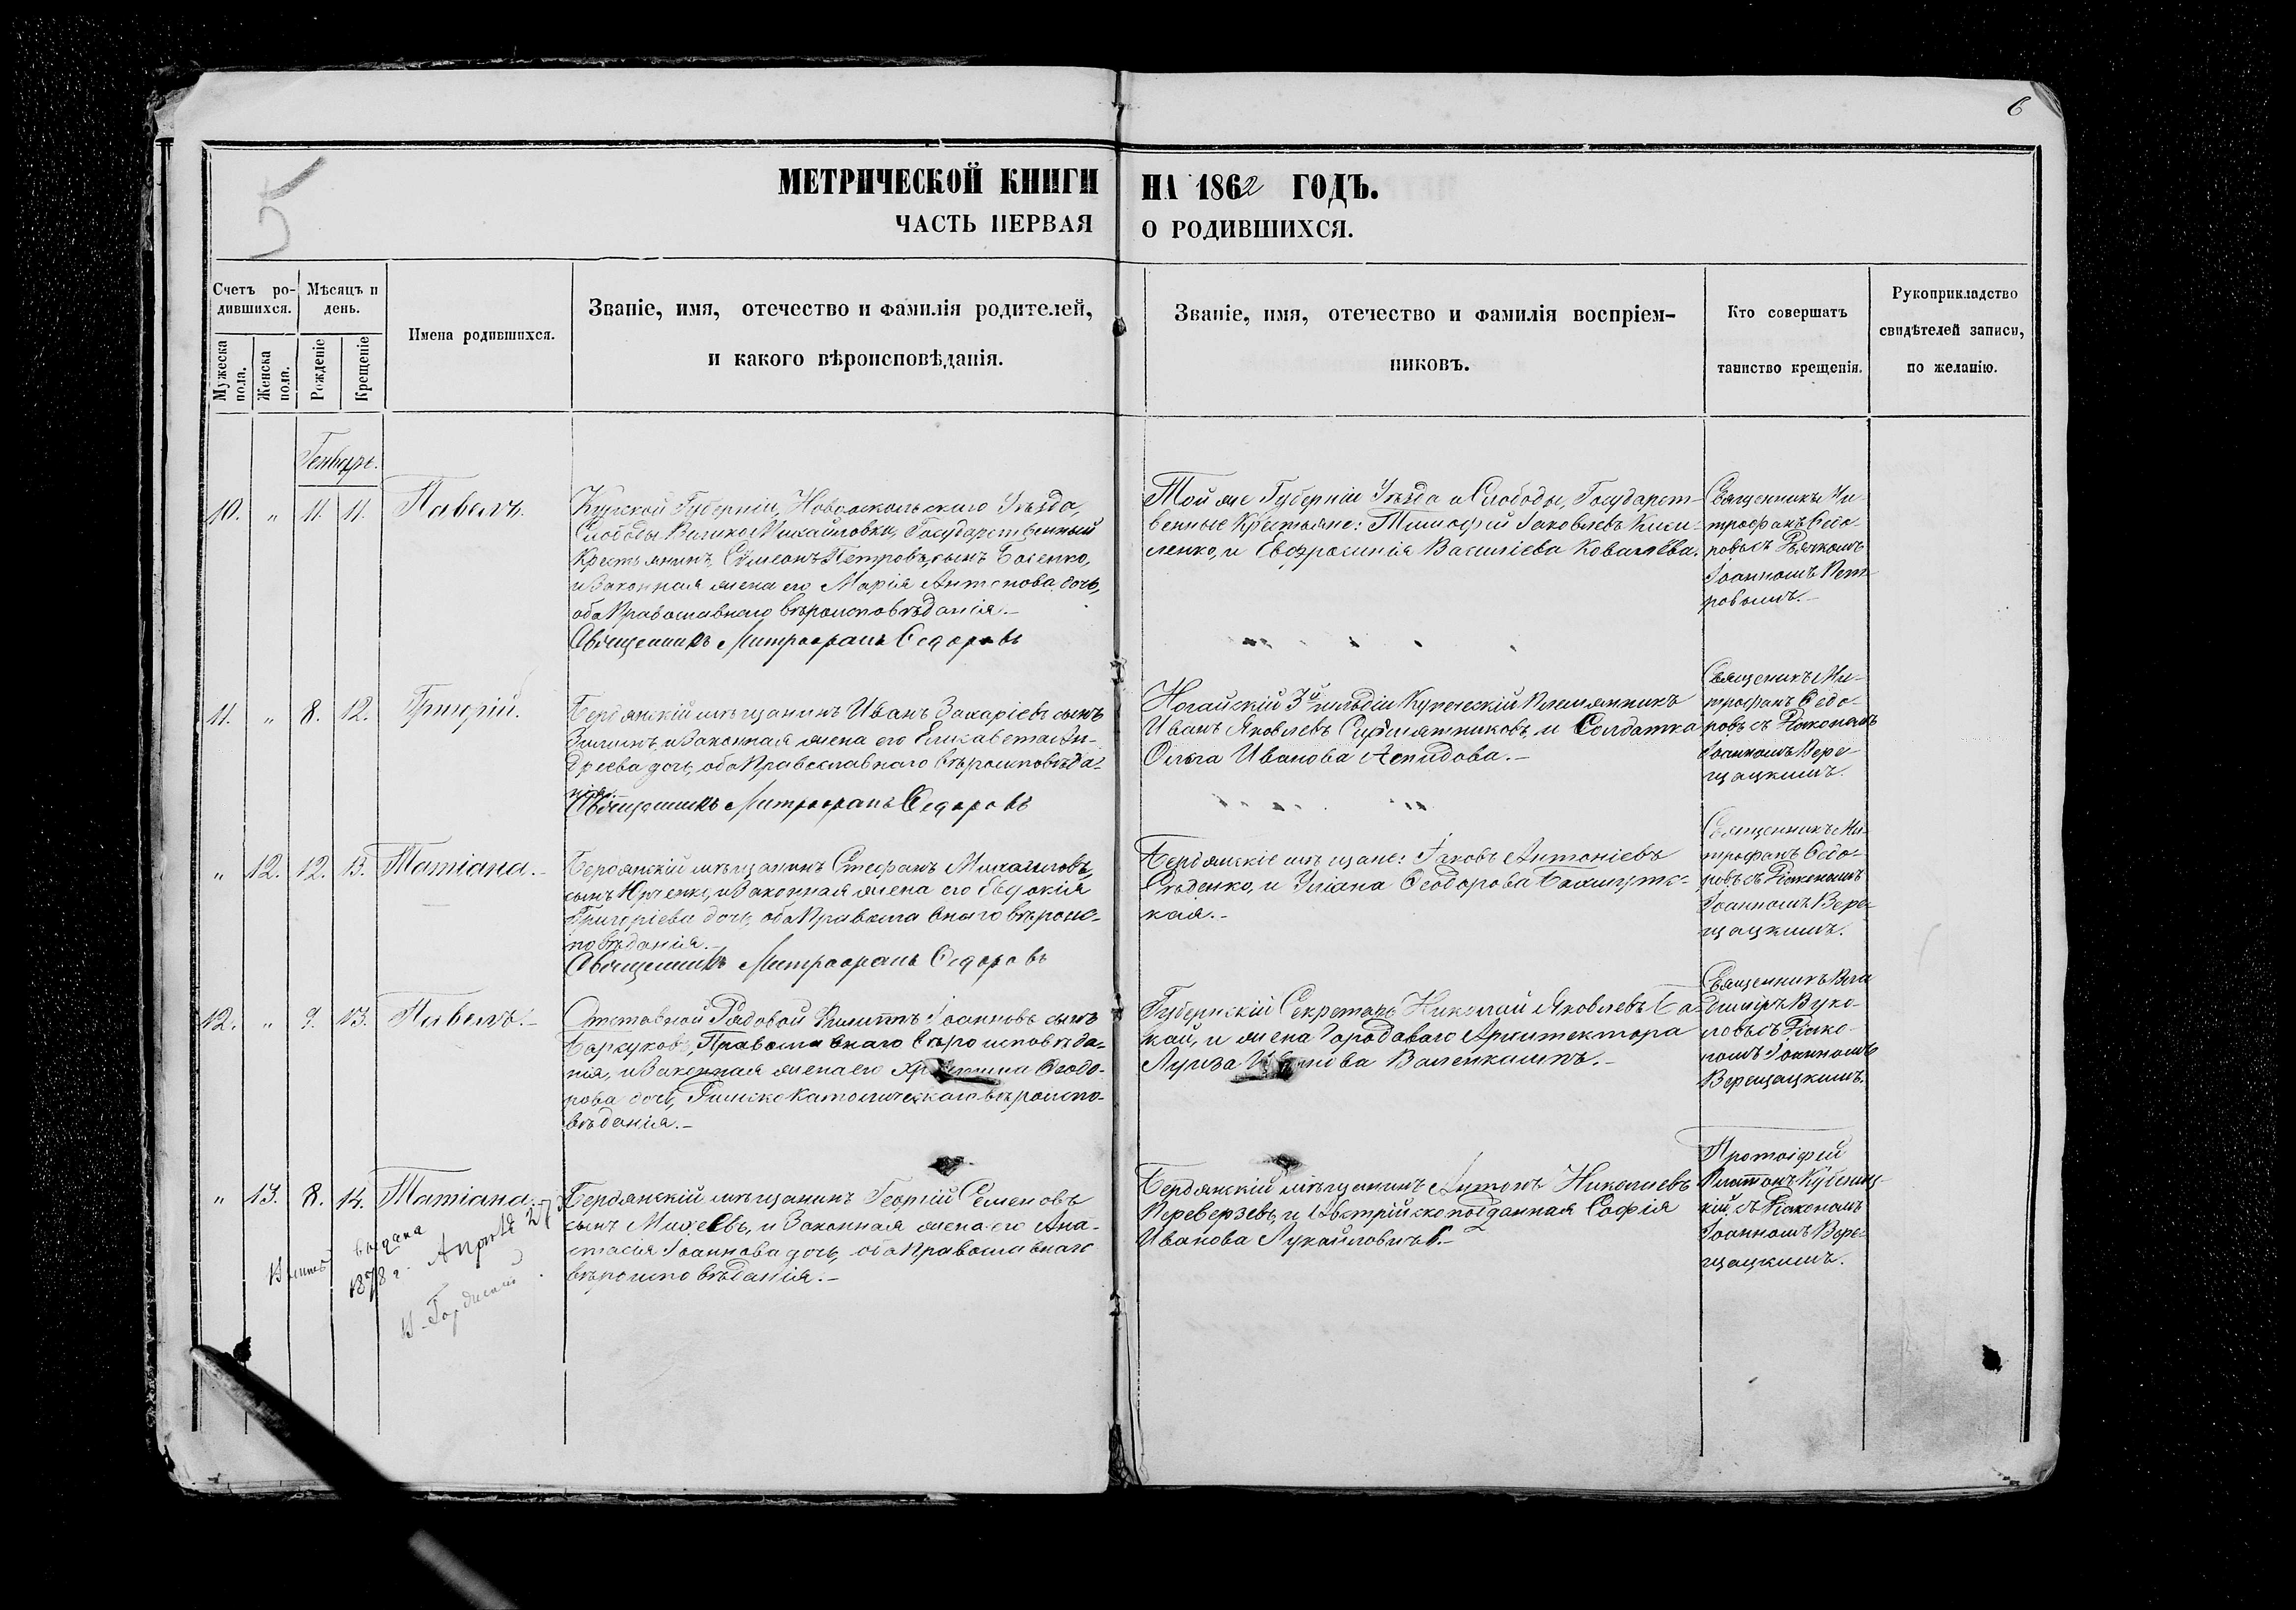 6
5
МЕТРИЧЕСКОЙ КНИГИ НА 1862 ГОДЪ.
ЧАСТЬ ПЕРВАЯ О РОДИВШИХСЯ.
Счетъ ро-
дившихся.
Мужеска
пола.
Женска
пола.
Мѣсяцъ и
день.
Рожденіе
Крещеніе
Имена родившихся.
Званіе, имя, отечество и фамилія родителей,
и какого вѣроисповѣданія.
Званіе, имя, отечество и фамилія воспріем-
никовъ.
Кто совершатъ
таинство крещенія.
Рукоприкладство
свидѣтелей записи,
по желанію.
Генварь.
10. „ 11. 11. Павелъ.
Курской Губерніи, Новооскольскаго Уѣзда,
Слободы Велико Михайловки, Государственный
Крестьянинъ, Симеонъ Петровъ сынъ
и Законная жена его Марія Антонова дочь,
оба Православнаго вѣроисповѣданія.-
Священникъ Митрофанъ Ѳедоровъ
Той же Губерніи Уѣзда и Слободы, Государст-
венные Крестьяне: Тимофей Іаковлевъ
и Евфросинія Василіева Ковалева.
Священникъ Ми-
трофанъ Ѳедо-
ровъ съ Дьячкомъ
Іоанномъ Пет-
ровымъ.-
11. „ 8. 12. Григорій.
Бердянскій мѣщанинъ Иванъ Захаріевъ сынъ
Зилинъ, и Законная жена его Елисавета Ан-
дреева дочь, оба Православнаго вѣроисповѣда-
нія.
Священникъ Митрофанъ Ѳедоровъ
Ногайскій 3й гильдіи Купеческій Племянникъ
Иванъ Яковлевъ и Солдатка
Ольга Иванова Аспидова.-
Священикъ Ми-
трофанъ Ѳедо-
ровъ съ Діакономъ
Іоанномъ Вере-
щацкимъ.
„ 12. 12. 13. Татіана.-
Бердянскій мѣщанинъ Стефанъ Михайловъ
сынъ Юрченко, и Законная жена его Евдокія
Григоріева дочь, оба Православнаго вѣроис-
повѣданія.-
Священникъ Митрофанъ Ѳедоровъ
Бердянскіе мѣщане: Іаковъ Антоніевъ
и Уліана Ѳеодорова
кая.-
Священникъ Ми-
трофанъ Ѳедо-
ровъ съ Діакономъ
Іоанномъ Вере-
щацкимъ.
12. „ 9. 13. Павелъ.-
Отставной Рядовой Филиппъ Іоанновъ сынъ
Барсуковъ, Православнаго вѣроисповѣда-
нія, и Законная жена его Ѳеодо-
рова дочь, Римско Католическаго вѣроиспо-
вѣданія.-
Губернскій Секретарь Николай Яковлевъ Ба-
кай, и жена Городоваго Архитектора
Луиза Иванова
Священникъ Вла
диміръ Вуко-
ловъ съ Діако-
номъ Іоанномъ
Верещацкимъ.
„ 13. 8. 14. Татіана.
выдана
1878 г. Апрѣля 27
Бердянскій мѣщанинъ Георгій Семеновъ
сынъ Михеевъ, и Законная жена его Ана-
стасія Іоаннова дочь, оба Православнаго
вѣроисповѣданія.-
Бердянскій мѣщанинъ Антонъ Николаевъ
Переверзевъ, и Австрійскоподданная Софія
Иванова Лукайловичъ.-
Протоіерей
Діакономъ
Іоанномъ Вере-
щацкимъ.